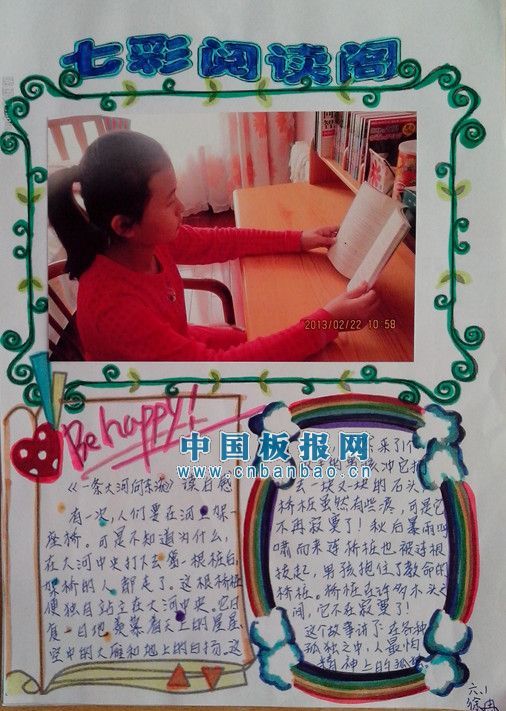 七彩阅读阁
2013/02/22 10:58
Be happy!
中国板报网
www.cnbanbao.cn
《一条大河向东流》读后感
有一次,人们要在河上架一
座桥。可是不知道为什么,
在大河中央打下去第一根桩后,
架桥的人都走了。这根桥桩
便独自站立在大河中央。它日
复一日地羡慕着天上的星星
空中的大雁和地上的白杨。这
来了个
男孩
冲它打
去一块又一块的石头
桥桩虽然有些疼,可是它
不再寂寞了!秋后暴雨呼
啸而来连桥桩也被连根
拔起,男孩抱住了救命的
桥桩。桥桩在许多木头之
间,它不在寂寞了!
这个故事讲了:在各种
孤独之中,人最怕
精神上的孤
六.1
徐冉